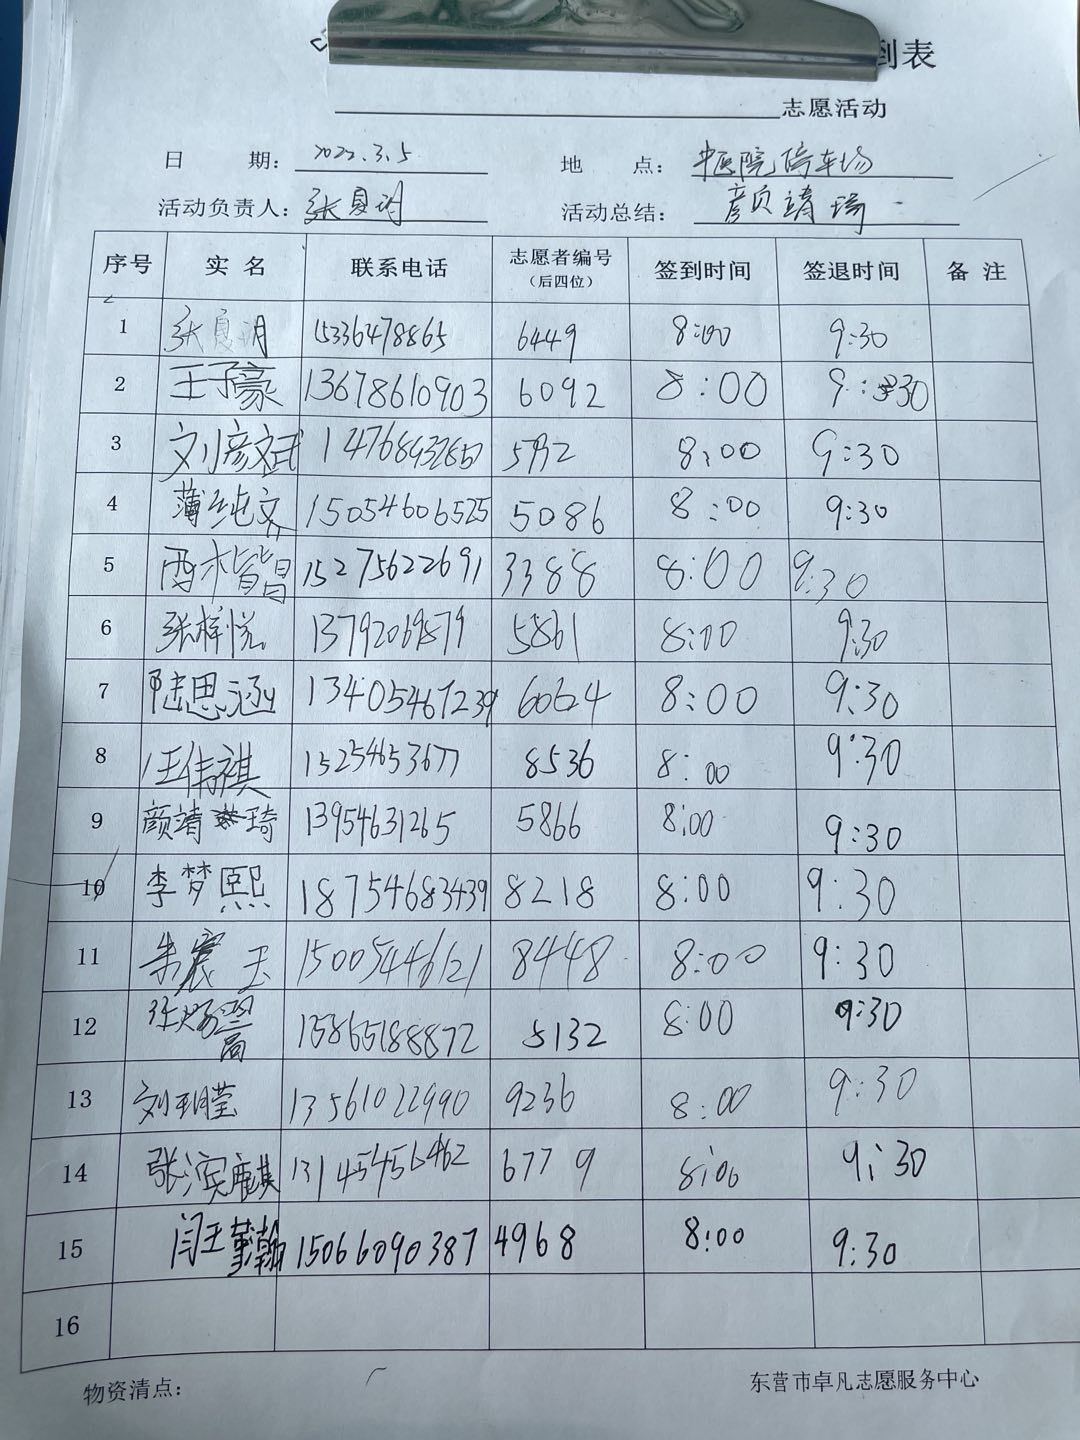 到表
志愿活动
日 期: 2022.3.5 地 点: 中医院停车场
活动负责人: 张夏玥 活动总结: 颜靖琦
序号 实 名 联系电话 志愿者编号(后四位) 签到时间 签退时间 备 注
1 张夏玥 15336478865 6449 8:00 9:30
2 王子豪 13678610903 6092 8:00 9:30
3 刘彦斌 8:00 9:30
4 薄纯文 15054606525 5086 8:00 9:30
5 15275622691 3388 8:00 9:30
6 张梓悦 13792069879 5861 8:00 9:30
7 陆思涵 13405467239 6024 8:00 9:30
8 汪伟祺 15254653677 8536 8:00 9:30
9 颜靖琦 13954631265 5866 8:00 9:30
10 李梦熙 18754683439 8218 8:00 9:30
11 朱宸玉 15005446121 8448 8:00 9:30
12 15865188872 5132 8:00 9:30
13 刘玥莹 13561022990 9236 8:00 9:30
14 张滨麒 13145456462 6779 8:00 9:30
15 闫王堇翰 15066090387 4968 8:00 9:30
16
物资清点: 东营市卓凡志愿服务中心